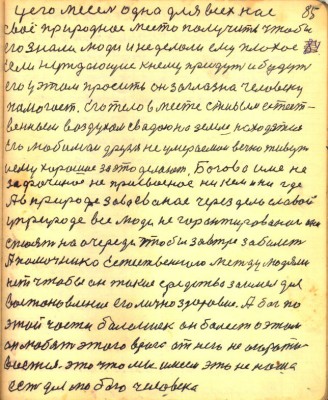 У его месеи одна для всех нас
своё природное место получить чтобы
его знали люди и не делали ему плохое
если нуждающие к нему придут и будут
его у этом просить он заглазна человеку
помогает. Его тело вместе с живым естест-
венным воздухом с водою на земле находятся
его любимая друзья не умираемая вечно живут
ему хорошие за это делают. Богово имя не
за природе завоёваное через дело славой
у природе все люди не гарантированые они
стоят на очереди чтобы завтра заболеть
А помочника естественного между людями
нет чтобы он такие средства занимел для
восстановление его лично здоровие. А бог по
этой части болельщик он болеет о этом
он любит этого врага от него не
это что мы имеем это не наша
есть для любого человека
85